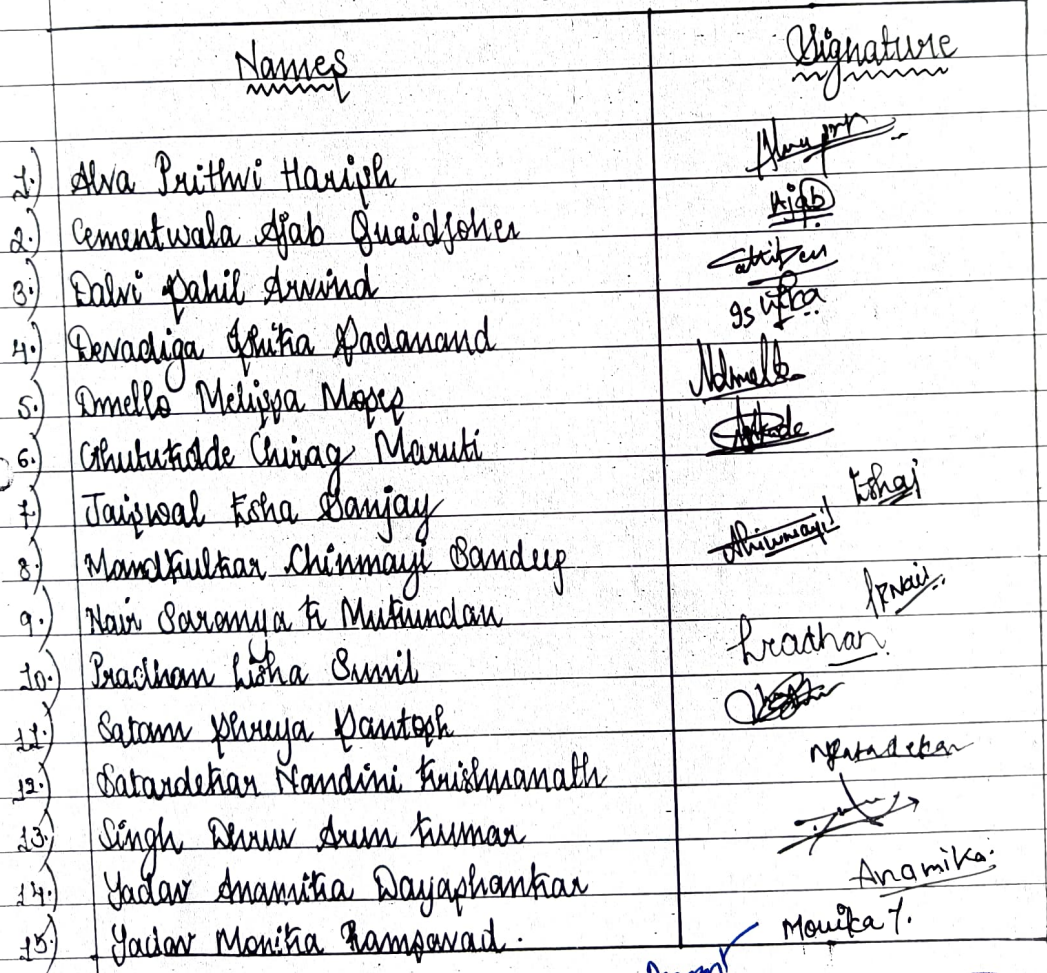 Names Signature
1.) Alva Prithvi Harish
2.) Cementwala Ajab Quaidjoher Ajab
3.) Dalvi Sahil Arvind
4.) Devadiga Ishika Sadanand
5.) Dmello Melissa Moses Ndmello
6.) Ghutukade Chirag Maruti
7.) Jaiswal Esha Sanjay Eshaj
8.) Mandkulkar Chinmayi Sandeep Chinmayi
9.) Nair Saranya K Mukundan SPNair
10.) Pradhan Lisha Sunil Lradhan
11.) Satam Shreya Santosh
12.) Satardekar Nandini Krishnanath NSatardekar
13.) Singh Dhruv Arun Kumar
14.) Yadav Anamika Dayashankar Anamika.
15.) Yadav Monika Ramsavad. Monika Y.